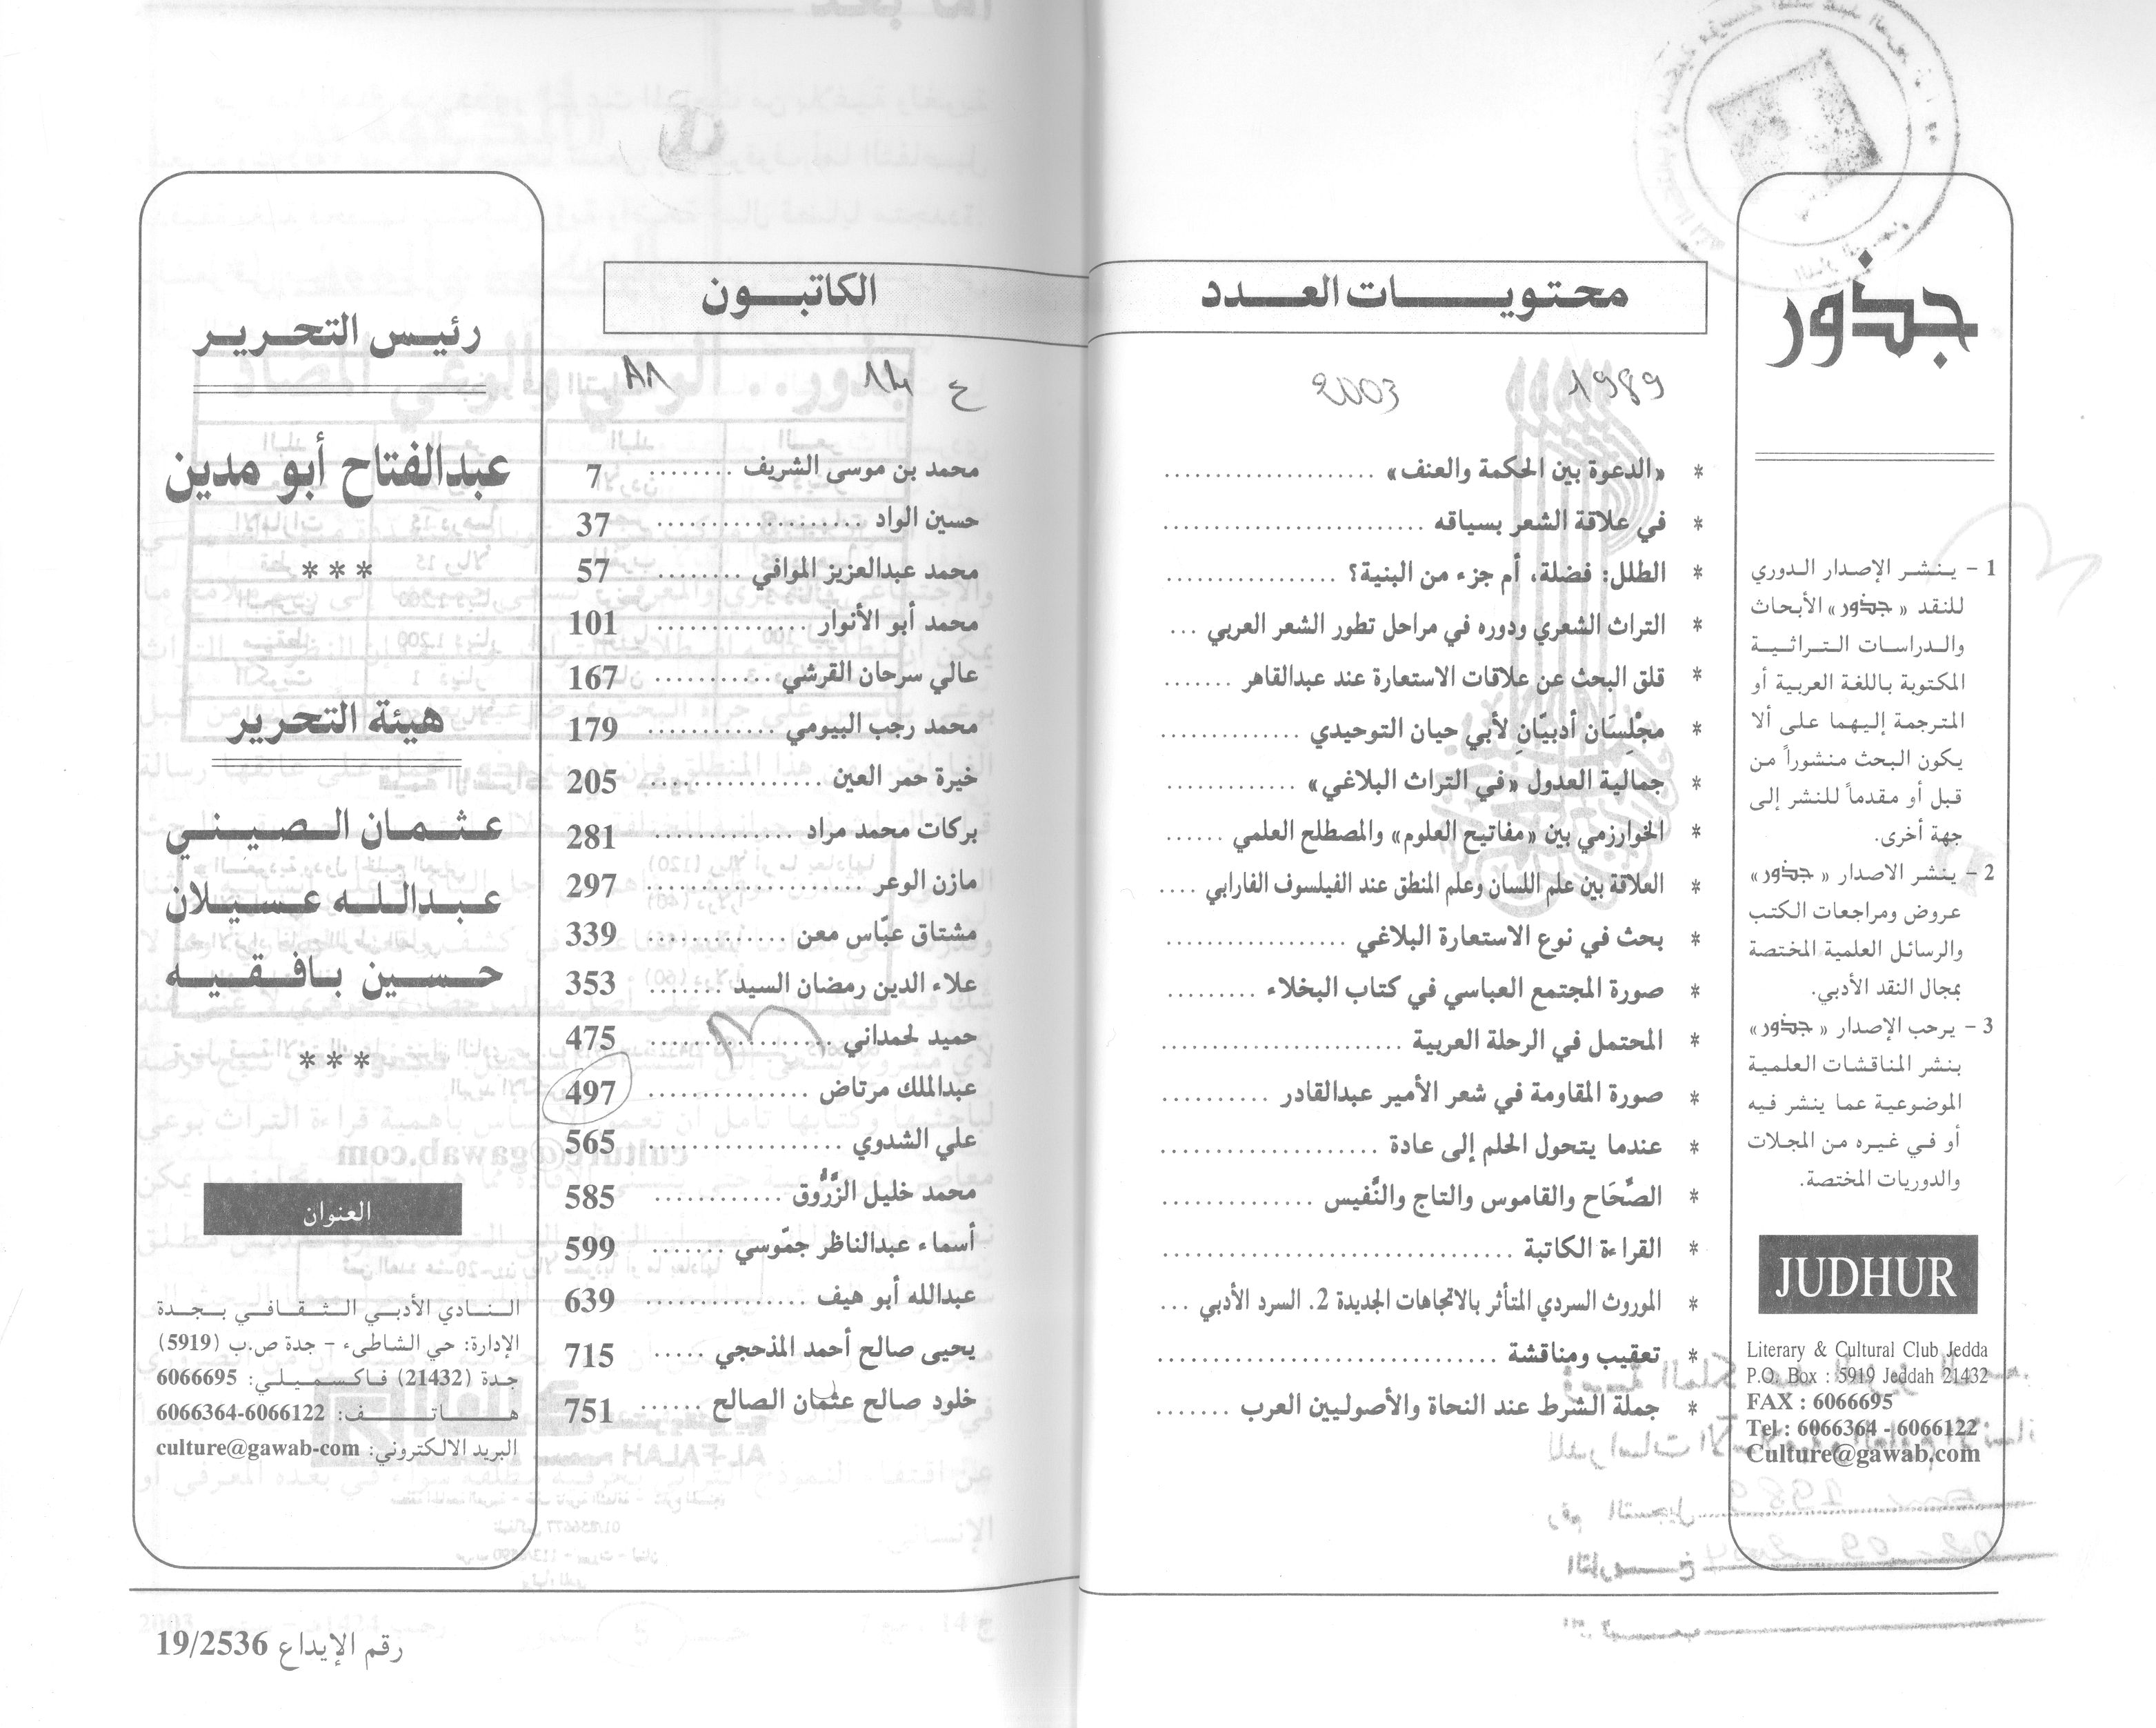 جذور
1 - ينشر الإصدار الدوري
للنقد «جذور» الأبحاث
والدراسات التراثية
المكتوبة باللغة العربية أو
المترجمة إليهما على ألا
يكون البحث منشوراً من
قبل أو مقدماً للنشر إلى
جهة أخرى.
2 - ينشر الاصدار «جذور»
عروض ومراجعات الكتب
والرسائل العلمية المختصة
بمجال النقد الأدبي.
3 - يرحب الإصدار «جذور»
بنشر المناقشات العلمية
الموضوعية عما ينشر فيه
أو في غيره من المجلات
والدوريات المختصة.
JUDHUR
Literary & Cultural Club Jedda
P.O. Box : 5919 Jeddah 21432
FAX : 6066695
Tel : 6066364 - 6066122
Culture@gawab.com
محتويات العدد الكاتبون
1989 2003
* «الدعوة بين الحكمة والعنف» ..................... محمد بن موسى الشريف ........ 7
* في علاقة الشعر بسياقه .......................... حسين الواد ..................... 37
* الطلل: فضلة، أم جزء من البنية؟ ................. محمد عبدالعزيز الموافي ........ 57
* التراث الشعري ودوره في مراحل تطور الشعر العربي ... محمد أبو الأنوار ............... 101
* قلق البحث عن علاقات الاستعارة عند عبدالقاهر ....... عالي سرحان القرشي ........... 167
* مجْلِسَان أدبيّانِ لأبي حيان التوحيدي .............. محمد رجب البيومي ............ 179
* جمالية العدول «في التراث البلاغي» ............. خيرة حمر العين ............... 205
* الخوارزمي بين «مفاتيح العلوم» والمصطلح العلمي ...... بركات محمد مراد .............. 281
* العلاقة بين علم اللسان وعلم المنطق عند الفيلسوف الفارابي .... مازن الوعر ...................... 297
* بحث في نوع الاستعارة البلاغي .................. مشتاق عبّاس معن .............. 339
* صورة المجتمع العباسي في كتاب البخلاء ......... علاء الدين رمضان السيد ....... 353
* المحتمل في الرحلة العربية ........................ حميد لحمداني .................. 475
* صورة المقاومة في شعر الأمير عبدالقادر .......... عبدالملك مرتاض ................ 497
* عندما يتحول الحلم إلى عادة ...................... علي الشدوي .................... 565
* الصِّحَاح والقاموس والتاج والنَّفيس ............... محمد خليل الزَّرُّوق ............ 585
* القراءة الكاتبة .............................. أسماء عبدالناظر جمّوسي ....... 599
* الموروث السردي المتأثر بالاتجاهات الجديدة 2. السرد الأدبي ... عبدالله أبو هيف ................ 639
* تعقيب ومناقشة .................................. يحيى صالح أحمد المذحجي ..... 715
* جملة الشرط عند النحاة والأصوليين العرب ....... خلود صالح عثمان الصالح ...... 751
رئيس التحرير
عبدالفتاح أبو مدين
***
هيئة التحرير
عثمان الصيني
عبدالله عسيلان
حسين بافقيه
***
العنوان
النادي الأدبي الثقافي بجدة
الإدارة: حي الشاطىء - جدة ص.ب (5919)
جدة (21432) فاكسميلي: 6066695
هاتف: 6066122-6066364
البريد الالكتروني: culture@gawab-com
رقم الإيداع 19/2536